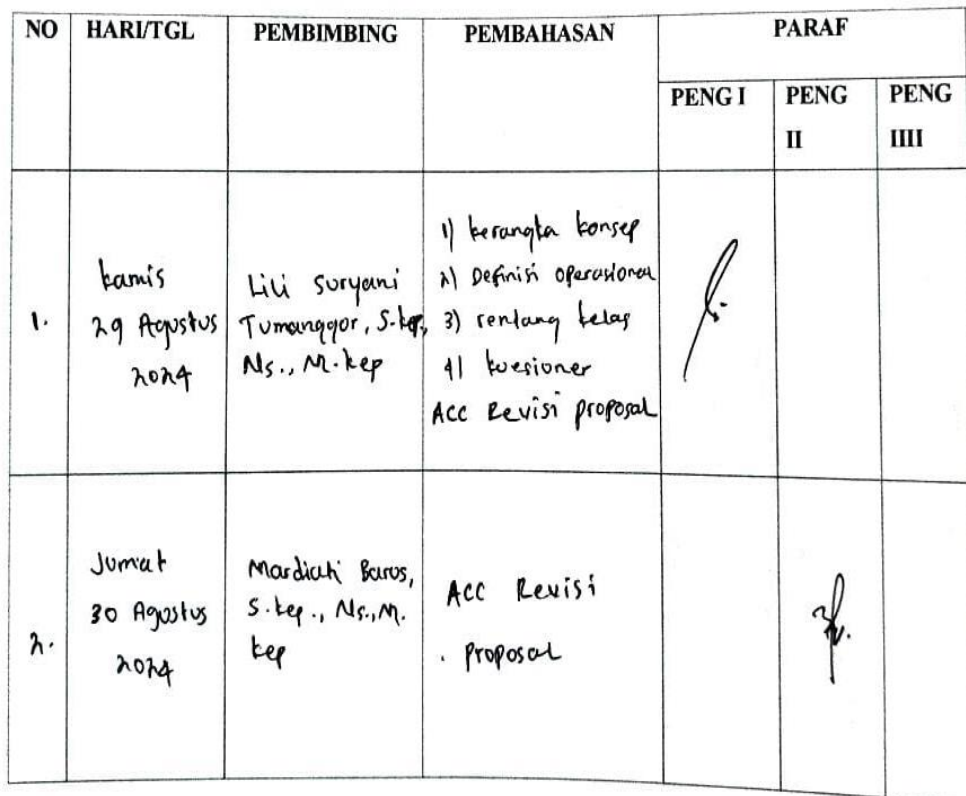 NO HARI/TGL PEMBIMBING PEMBAHASAN PARAF
PENG I PENG II PENG IIII
1.
kamis
29 Agustus
2024
Lili Suryani
Tumanggor, S.kep,
Ns., M.kep
1) kerangka konsep
2) Definisi operasional
3) rentang kelas
4) kuesioner
ACC Revisi proposal
2.
Jumat
30 Agustus
2024
Mardiati Barus,
S.kep., Ns., M.
kep
ACC Revisi
proposal